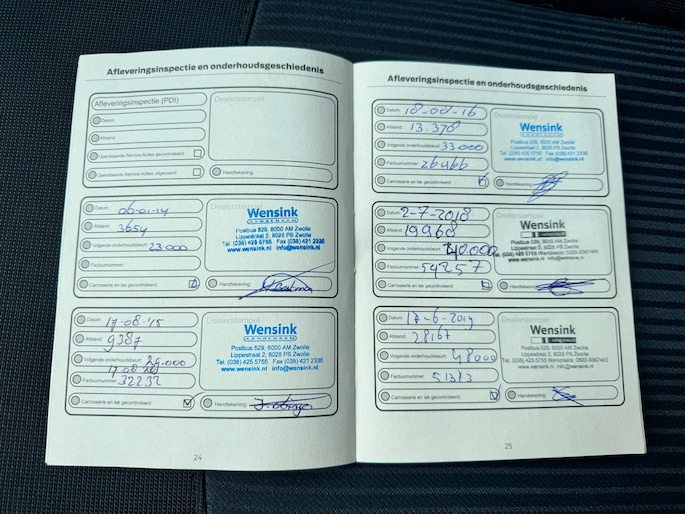 Afleveringsinspectie en onderhoudsgeschiedenis
Afleveringsinspectie (PDI)
Dealerstempel
Datum:
Afstand:
Openstaande Service Acties gecontroleerd:
Openstaande Service Acties uitgevoerd:
Handtekening:
Datum: 06-01-14
Afstand: 3654
Volgende onderhoudsbeurt: 23.000
Factuurnummer:
Carrosserie en lak gecontroleerd:
Wensink
Postbus 529, 8000 AM Zwolle
Lippestraat 2, 8028 PS Zwolle
Tel. (038) 425 5755 Fax (038) 421 2336
www.wensink.nl info@wensink.nl
Handtekening:
Datum: 17-08-'15
Afstand: 9387
Volgende onderhoudsbeurt:
Factuurnummer: 32232
Carrosserie en lak gecontroleerd:
Dealerstempel
Wensink
Postbus 529, 8000 AM Zwolle
Lippestraat 2, 8028 PS Zwolle
Tel. (038) 425 5755 Fax (038) 421 2336
www.wensink.nl info@wensink.nl
Handtekening:
24
Afleveringsinspectie en onderhoudsgeschiedenis
Datum: 18-08-16
Afstand: 13.378
Volgende onderhoudsbeurt: 33.000
Factuurnummer: 26466
Carrosserie en lak gecontroleerd:
Dealerstempel
Wensink
Postbus 529, 8000 AM Zwolle
Lippestraat 2, 8028 PS Zwolle
Tel. (038) 425 5755 Fax (038) 421 2336
www.wensink.nl info@wensink.nl
Handtekening:
Datum: 2-7-2018
Afstand: 19968
Volgende onderhoudsbeurt:
Factuurnummer: 54257
Carrosserie en lak gecontroleerd:
Dealerstempel
Wensink
Postbus 529, 8000 AM Zwolle
Lippestraat 2, 8028 PS Zwolle
Tel. (038) 425 5755 Werkplaats: 0800-0367465
www.wensink.nl info@wensink.nl
Handtekening:
Datum: 17-6-2019
Afstand: 28167
Volgende onderhoudsbeurt: 48000
Factuurnummer: 51373
Carrosserie en lak gecontroleerd:
Dealerstempel
Wensink
Postbus 529, 8000 AM Zwolle
Lippestraat 2, 8028 PS Zwolle
Tel. (038) 425 5755 Werkplaats: 0800-0367465
www.wensink.nl info@wensink.nl
Handtekening:
25